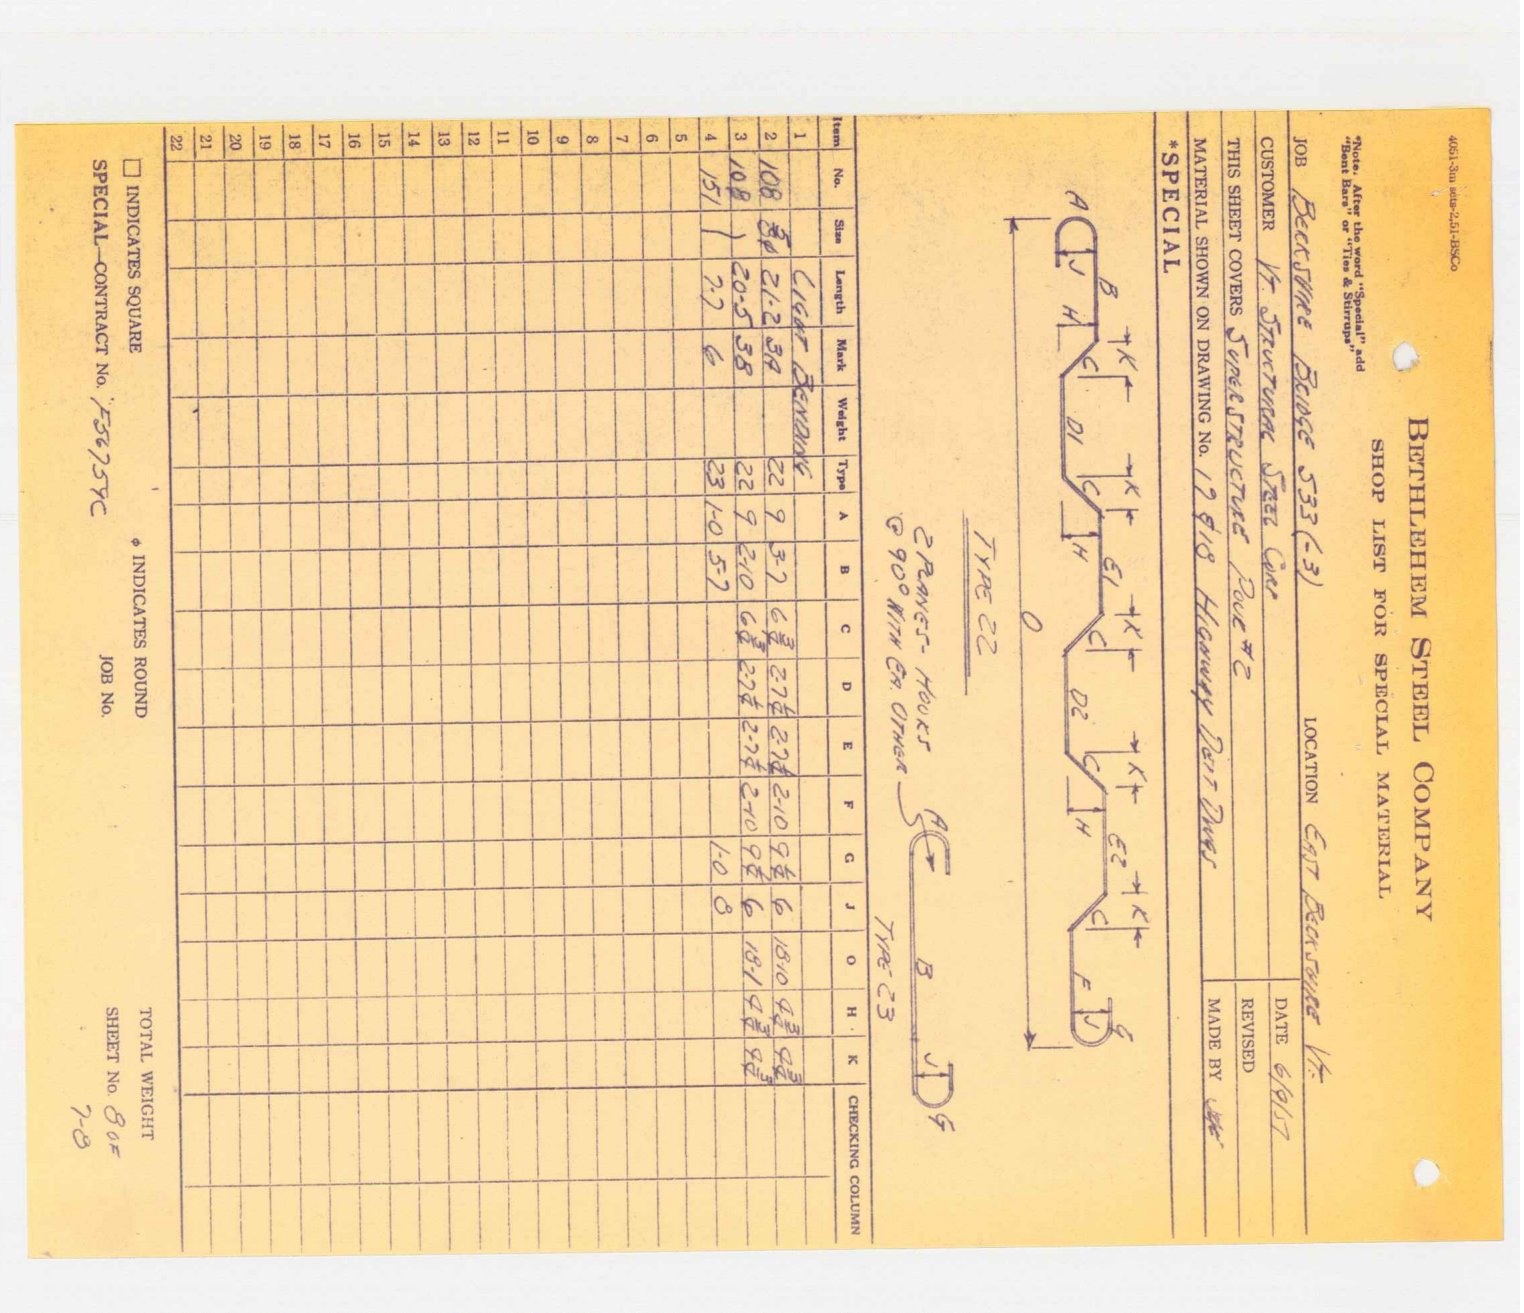 4051-3m sets-2,51-BSCo
BETHLEHEM STEEL COMPANY
SHOP LIST FOR SPECIAL MATERIAL
*Note. After the word "Special" add
"Bent Bars" or "Ties & Stirrups"
JOB BERKSHIRE BRIDGE S33(-3) LOCATION EAST BERKSHIRE VT.
CUSTOMER VT. STRUCTURAL STEEL CORP DATE 6/9/57
THIS SHEET COVERS SUPERSTRUCTURE POUR #2 REVISED
MATERIAL SHOWN ON DRAWING No. 17 & 18 HIGHWAY DEPT DWGS MADE BY
*SPECIAL
K K K K K
A B C C E1 C C E2 C G
J H D1 H D2 H F J
O
TYPE 22
2 PLANES - HOOKS
@ 90° WITH EA. OTHER
A B J G
TYPE 23
Item No. Size Length Mark Weight Type A B C D E F G J O H K CHECKING COLUMN
1 LIGHT BENDING
2 108 5ϕ 21-2 3A 22 9 3-7 6 3/4 2-7 1/2 2-7 1/2 2-10 9 1/2 6 18-10 4 3/4 4 3/4
3 108 20-5 3B 22 9 2-10 6 3/4 2-7 1/2 2-7 1/2 2-10 9 1/2 6 18-1 4 3/4 4 3/4
4 151 7-7 6 23 1-0 5-7 1-0 8
5
6
7
8
9
10
11
12
13
14
15
16
17
18
19
20
21
22
☐ INDICATES SQUARE ϕ INDICATES ROUND TOTAL WEIGHT
SPECIAL—CONTRACT No. F56759C JOB No. SHEET No. 8 OF
7-8